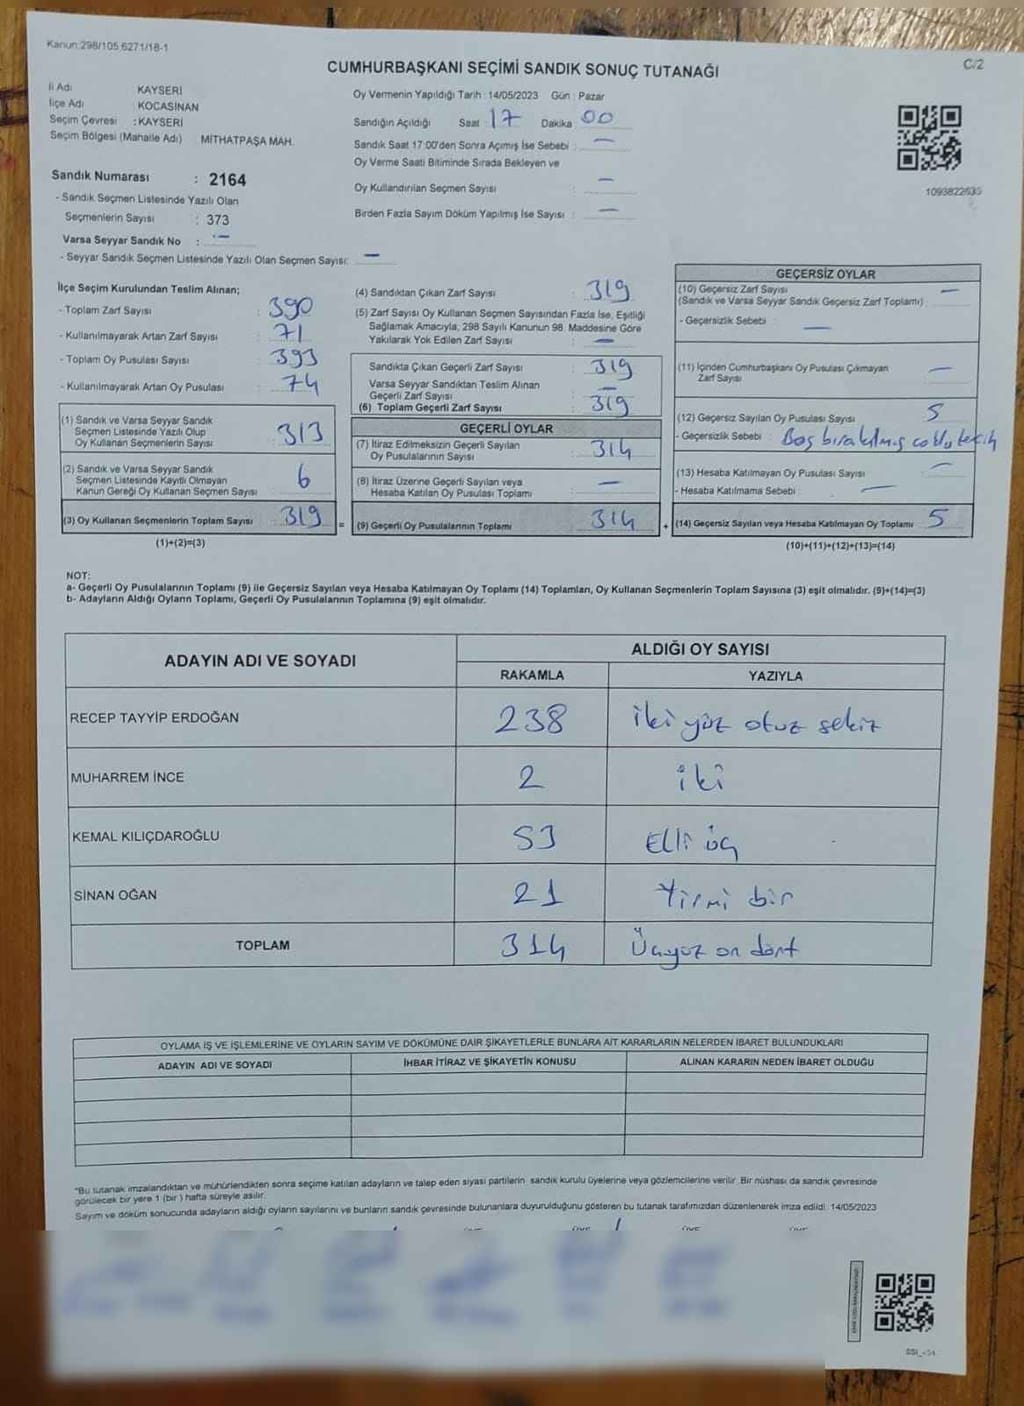 Kanun:298/105.6271/18-1
C/2
CUMHURBAŞKANI SEÇİMİ SANDIK SONUÇ TUTANAĞI
İl Adı KAYSERİ
İlçe Adı : KOCASİNAN
Seçim Çevresi : KAYSERİ
Seçim Bölgesi (Mahalle Adı) MİTHATPAŞA MAH.
Sandık Numarası : 2164
- Sandık Seçmen Listesinde Yazılı Olan
Seçmenlerin Sayısı : 373
Varsa Seyyar Sandık No : -
- Seyyar Sandık Seçmen Listesinde Yazılı Olan Seçmen Sayısı: -
Oy Vermenin Yapıldığı Tarih : 14/05/2023 Gün : Pazar
Sandığın Açıldığı Saat : 17 Dakika 00
Sandık Saat 17:00'den Sonra Açımış İse Sebebi : -
Oy Verme Saati Bitiminde Sırada Bekleyen ve
Oy Kullandırılan Seçmen Sayısı : -
Birden Fazla Sayım Döküm Yapılmış İse Sayısı : -
İlçe Seçim Kurulundan Teslim Alınan;
- Toplam Zarf Sayısı : 390
- Kullanılmayarak Artan Zarf Sayısı : 71
- Toplam Oy Pusulası Sayısı : 393
- Kullanılmayarak Artan Oy Pusulası : 74
(1) Sandık ve Varsa Seyyar Sandık
Seçmen Listesinde Yazılı Olup
Oy Kullanan Seçmenlerin Sayısı : 313
(2) Sandık ve Varsa Seyyar Sandık
Seçmen Listesinde Kayıtlı Olmayan
Kanun Gereği Oy Kullanan Seçmen Sayısı 6
(3) Oy Kullanan Seçmenlerin Toplam Sayısı : 319
(1)+(2)=(3)
(4) Sandıktan Çıkan Zarf Sayısı : 319
(5) Zarf Sayısı Oy Kullanan Seçmen Sayısından Fazla İse, Eşitliği
Sağlamak Amacıyla; 298 Sayılı Kanunun 98. Maddesine Göre
Yakılarak Yok Edilen Zarf Sayısı : -
Sandıkta Çıkan Geçerli Zarf Sayısı : 319
Varsa Seyyar Sandıktan Teslim Alınan
Geçerli Zarf Sayısı : -
(6) Toplam Geçerli Zarf Sayısı : 319
GEÇERLİ OYLAR
(7) İtiraz Edilmeksizin Geçerli Sayılan
Oy Pusulalarının Sayısı : 314
(8) İtiraz Üzerine Geçerli Sayılan veya
Hesaba Katılan Oy Pusulası Toplamı : -
= (9) Geçerli Oy Pusulalarının Toplamı : 314 +
1093822635
GEÇERSİZ OYLAR
(10) Geçersiz Zarf Sayısı -
(Sandık ve Varsa Seyyar Sandık Geçersiz Zarf Toplamı) :
- Geçersizlik Sebebi : -
(11) İçinden Cumhurbaşkanı Oy Pusulası Çıkmayan
Zarf Sayısı : -
(12) Geçersiz Sayılan Oy Pusulası Sayısı : 5
- Geçersizlik Sebebi : Boş bırakılmış
(13) Hesaba Katılmayan Oy Pusulası Sayısı : -
- Hesaba Katılmama Sebebi : -
(14) Geçersiz Sayılan veya Hesaba Katılmayan Oy Toplamı : 5
(10)+(11)+(12)+(13)=(14)
NOT:
a- Geçerli Oy Pusulalarının Toplamı (9) ile Geçersiz Sayılan veya Hesaba Katılmayan Oy Toplamı (14) Toplamları, Oy Kullanan Seçmenlerin Toplam Sayısına (3) eşit olmalıdır. (9)+(14)=(3)
b- Adayların Aldığı Oyların Toplamı, Geçerli Oy Pusulalarının Toplamına (9) eşit olmalıdır.
ADAYIN ADI VE SOYADI
ALDIĞI OY SAYISI
RAKAMLA YAZIYLA
RECEP TAYYİP ERDOĞAN 238 iki yüz otuz sekiz
MUHARREM İNCE 2 iki
KEMAL KILIÇDAROĞLU 53 Elli üç
SİNAN OĞAN 21 Yirmi bir
TOPLAM 314 Üçyüz on dört
OYLAMA İŞ VE İŞLEMLERİNE VE OYLARIN SAYIM VE DÖKÜMÜNE DAİR ŞİKAYETLERLE BUNLARA AİT KARARLARIN NELERDEN İBARET BULUNDUKLARI
ADAYIN ADI VE SOYADI İHBAR İTİRAZ VE ŞİKAYETİN KONUSU ALINAN KARARIN NEDEN İBARET OLDUĞU
*Bu tutanak imzalandıktan ve mühürlendikten sonra seçime katılan adayların ve talep eden siyasi partilerin sandık kurulu üyelerine veya gözlemcilerine verilir. Bir nüshası da sandık çevresinde
görülecek bir yere 1 (bir) hafta süreyle asılır.
Sayım ve döküm sonucunda adayların aldığı oyların sayılarını ve bunların sandık çevresinde bulunanlara duyurulduğunu gösteren bu tutanak tarafımızdan düzenlenerek imza edildi. 14/05/2023